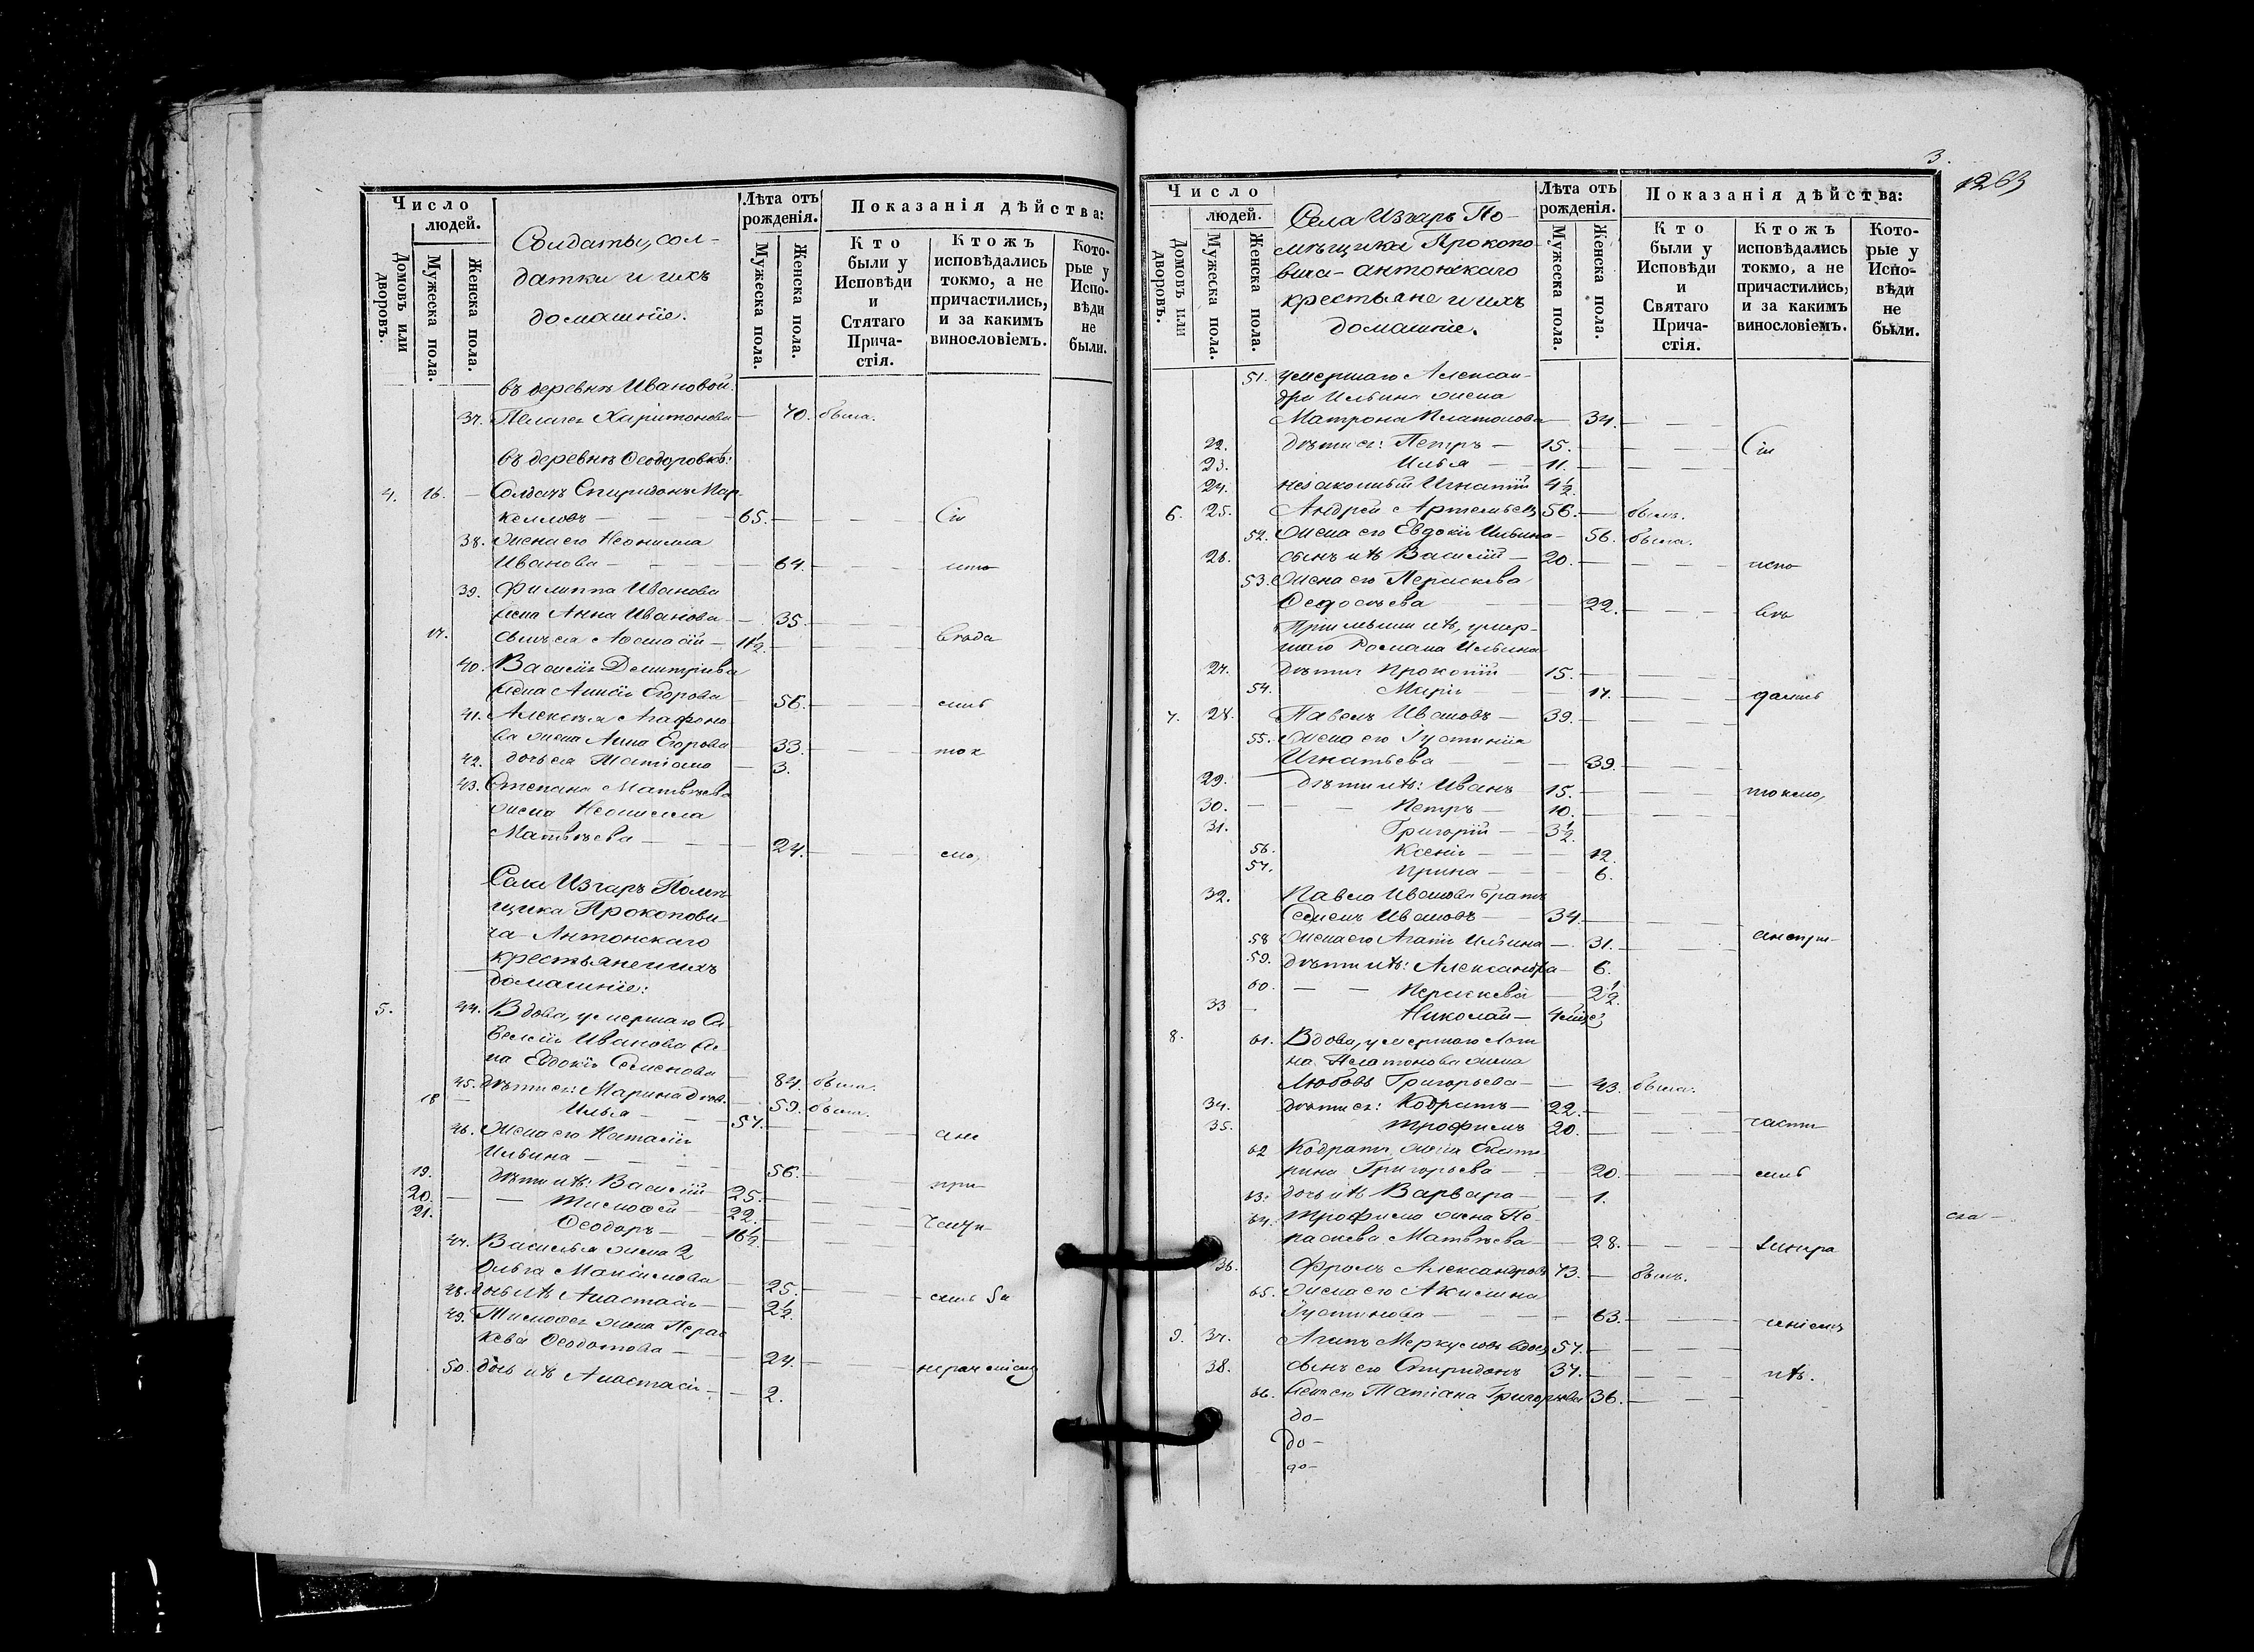 Число
людей.
Домовъ или дворовъ.
Мужеска пола.
Женска пола.
Солдаты, сол-
датки и ихъ
домашніе.
Лѣта отъ
рожденія.
Мужеска пола.
Женска пола.
Показанія дѣйства:
Кто
были у
Исповѣди
и
Стятаго
Прича-
стія.
Ктожъ
исповѣдались
токмо, а не
причастились,
и за какимъ
винословіемъ.
Кото-
рые у
Испо-
вѣди
не
были.
въ деревнѣ Ивановой.
37. Харитонова — 70. была.
въ деревнѣ Ѳеодоровкѣ:
4. 16. — Солдатъ Спиридонъ Мар-
келловъ — 65. — Сіи
38. жена его Неонилла
Иванова — 64.
39. Филиппа Иванова
жена Анна Иванова — 35.
17. сынъ ея — 11½.
40. Василія Димитріева
жена Егорова — 56.
41. Алексѣя Агафоно-
ва жена Анна Егорова — 33.
42. дочь ея Татіана — 3.
43. Степана Матвѣева
жена Неонилла
Матвѣева — 24.
Села Изгаръ Помѣ-
щика Прокопови-
ча-Антонскаго
крестьяне и ихъ
домашніе:
5. 44. Вдова, умершаго Са-
велія Иванова же-
на Евдокія Семенова — 84. была.
45. дѣти ея: Марина — 59. была.
18 — Илья — 57.
46. жена его Наталія
Ильина — 56.
19. дѣти ихъ: Василій — 25. при-
20. — — Тимоѳей — 22.
21. Ѳеодоръ — 16½.
47. Василья жена 2
Ольга Максимова — 25.
48. дочь ихъ Анастасія — 2½.
49. Тимоѳея жена Парас-
кева Ѳеодотова — 24.
50. дочь ихъ Анастасія — 2.
3.
1263
Число
людей.
Домовъ или дворовъ.
Мужеска пола.
Женска пола.
Села Изгаръ По-
мѣщика Прокопо-
вича-Антонскаго
крестьяне и ихъ
домашніе.
Лѣта отъ
рожденія.
Мужеска пола.
Женска пола.
Показанія дѣйства:
Кто
были у
Исповѣди
и
Святаго
Прича-
стія.
Ктожъ
исповѣдались
токмо, а не
причастились,
и за какимъ
винословіемъ.
Кото-
рые у
Испо-
вѣди
не
были.
51. умершаго Алексан-
дра Ильина жена
Матрона Платонова — 34.
22. дѣти ея: Петръ — 15. — Сіи
23. Илья — 11.
24. незаконный Игнатій 4½.
6. 25. Андрей Артемьевъ 56. — былъ.
52. жена его Евдокія Ильина — 56. была.
26. сынъ ихъ Василій — 20. — испо-
53. жена его Параскева
Ѳедосѣева — 22. вѣ-
Пріемыши ихъ, умер-
шаго Романа Ильина
27. дѣти Прокопій — 15.
54. Марія — 17. дались
7. 28. Павелъ Ивановъ — 39.
55. жена его Іустинія
Игнатьева — 39.
29. дѣти ихъ: Иванъ 15. — токмо,
30. — — Петръ — 10.
31. Григорій — 3½.
56. Ксенія — 12.
57. Ирина — 6.
32. Павла Иванова братъ
Семенъ Ивановъ — 34.
58 жена его Агаѳія Ильина — 31. а не при-
59. дѣти ихъ: Александра — 6.
60. — — Параскева — 2½.
33 — Николай —
8. 61. Вдова, умершаго Логи-
на Платонова жена
Любовь Григорьева — 43. была.
34. дѣти ея: Кодратъ — 22. части-
35. Трофимъ 20.
62 Кодрата жена Екате-
рина Григорьева — 20. — лись
63. дочь ихъ Варвара — 1.
64. Трофима жена Па-
раскева Матвѣева — 28.
36. Фролъ Александровъ 73. — былъ.
65. жена его Акилина
Іустинова — 63. — ніемъ
9. 37. Агапъ Меркуловъ вдовъ 57.
38. сынъ его Спиридонъ 37. — ихъ.
66. жена его Татіана Григорьева 36.
до-
до-
до-